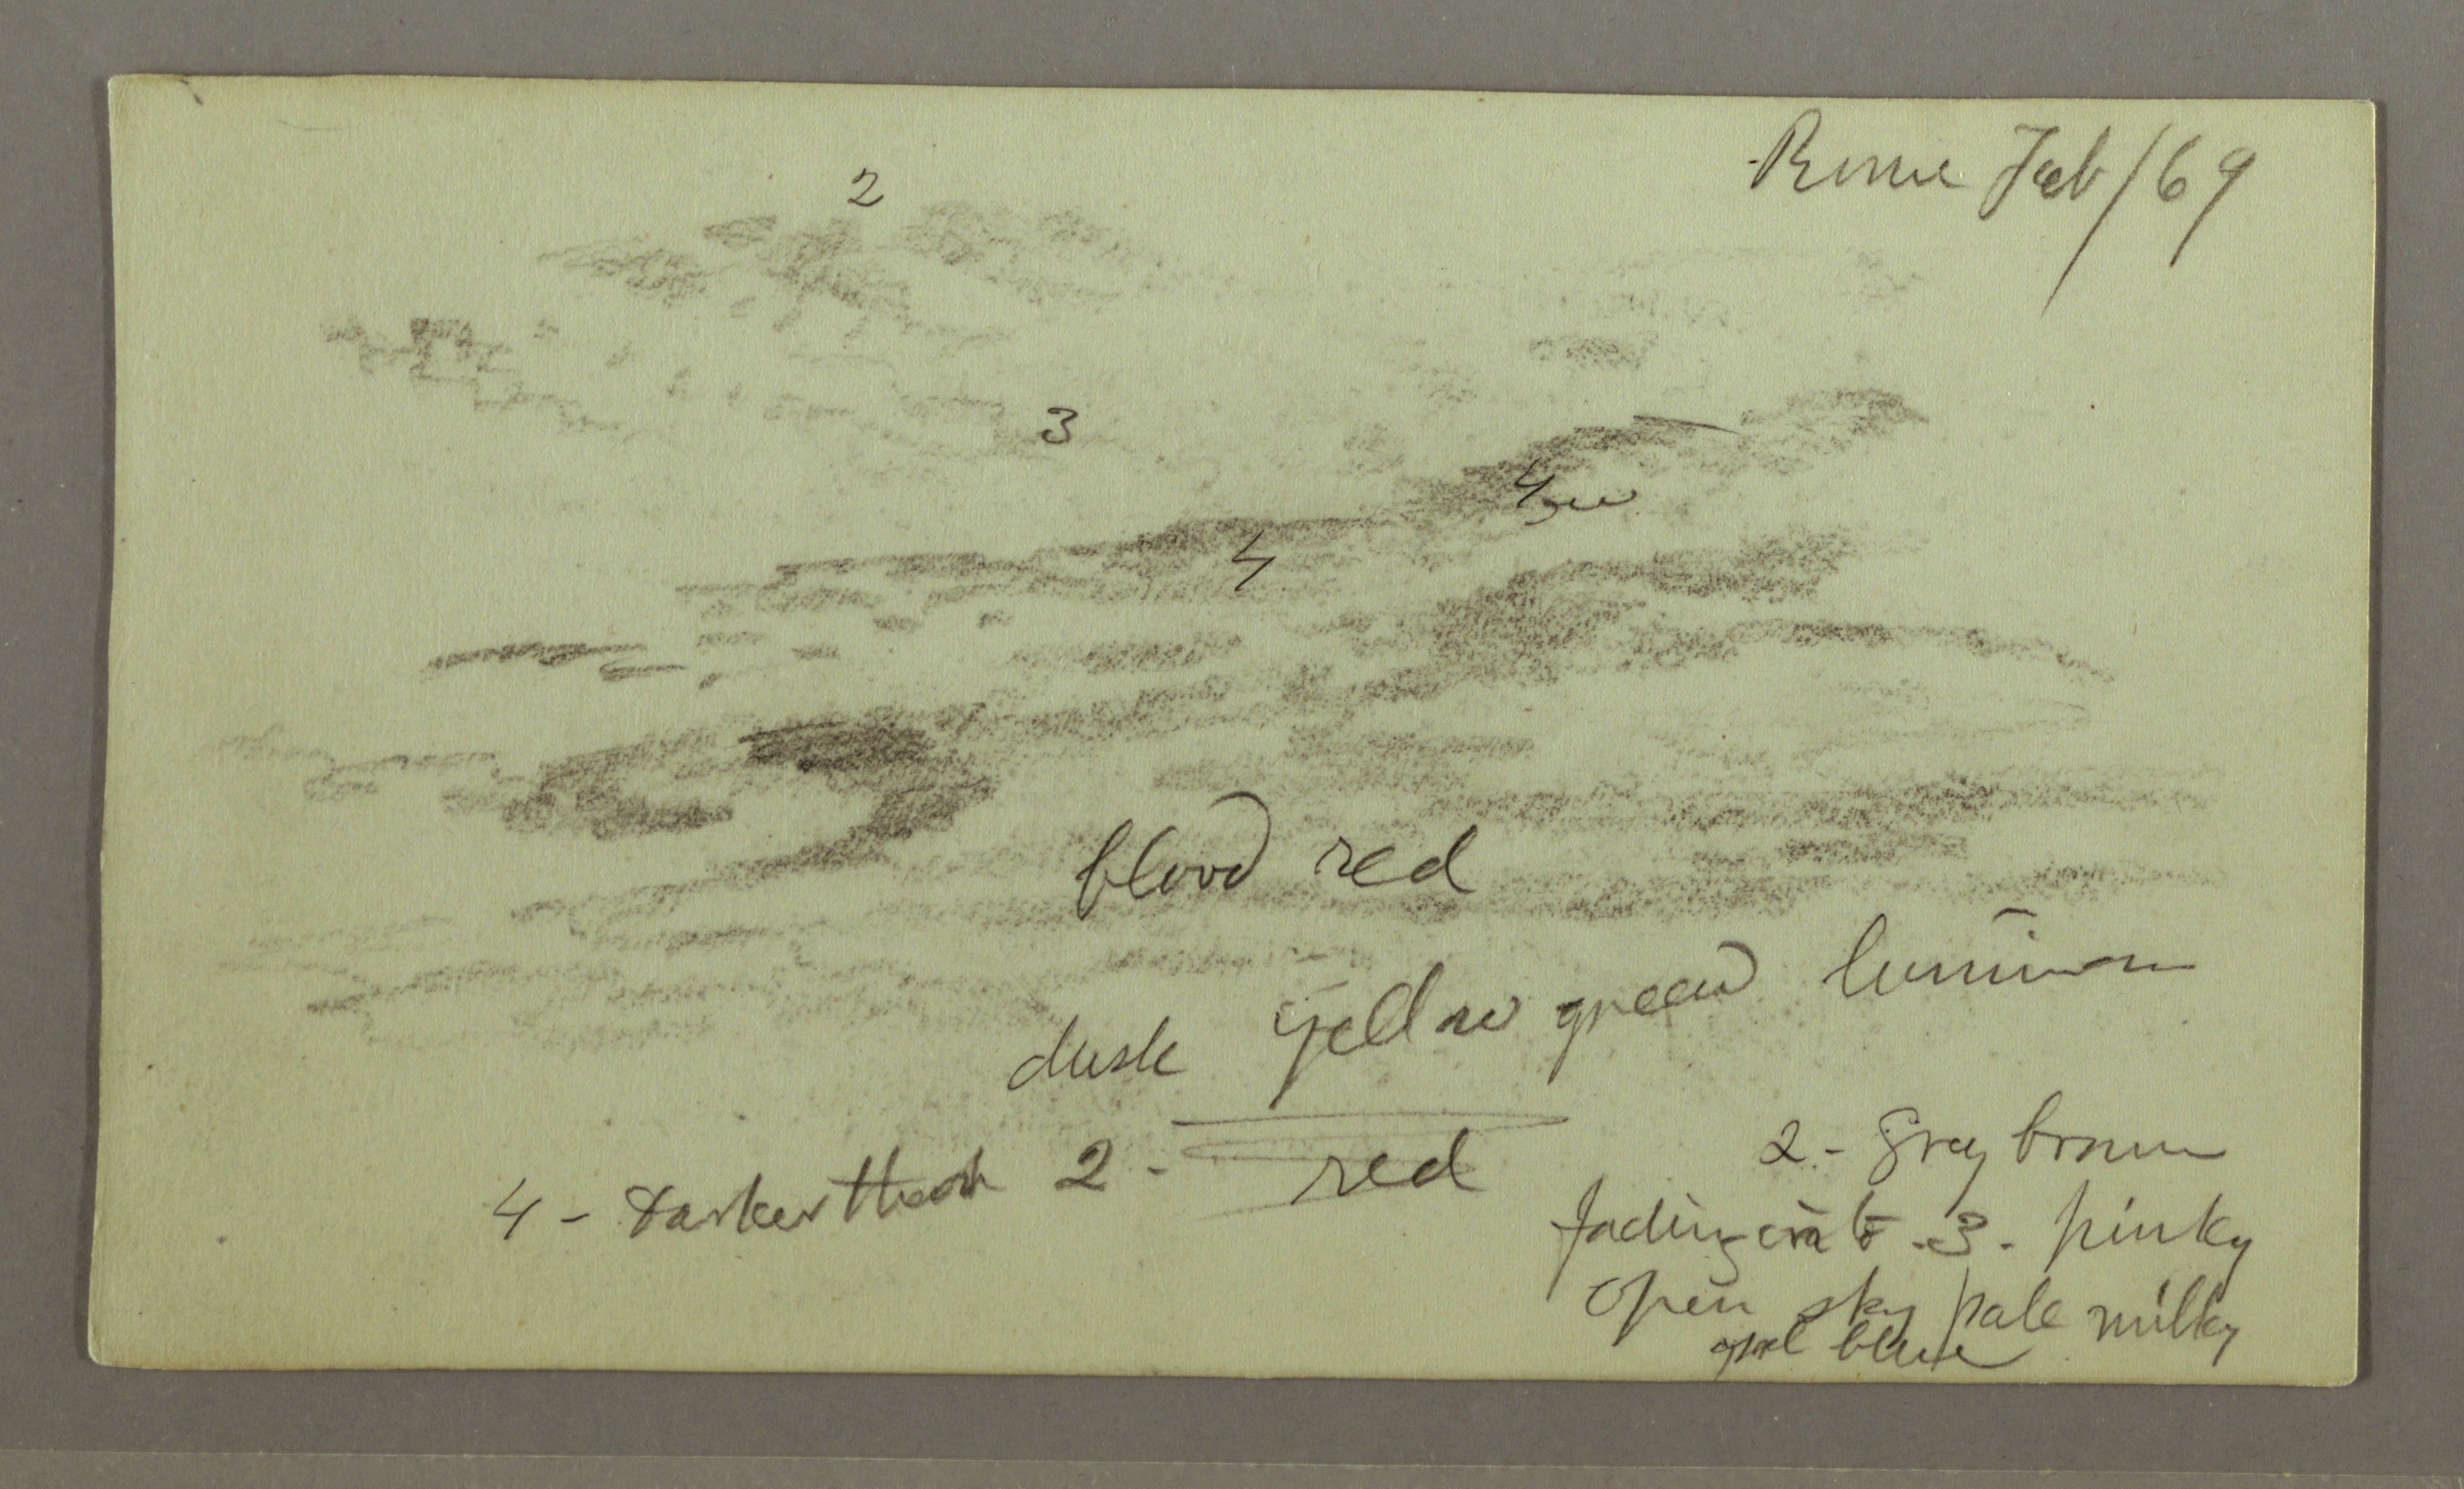 Rome Feb/69
2
3
4
4
blood red
dusk yellow green luminous
red
4 - Darker than 2 -
2 - Grey brown
fading into - 3 - pinky
open sky pale milky
opal blue